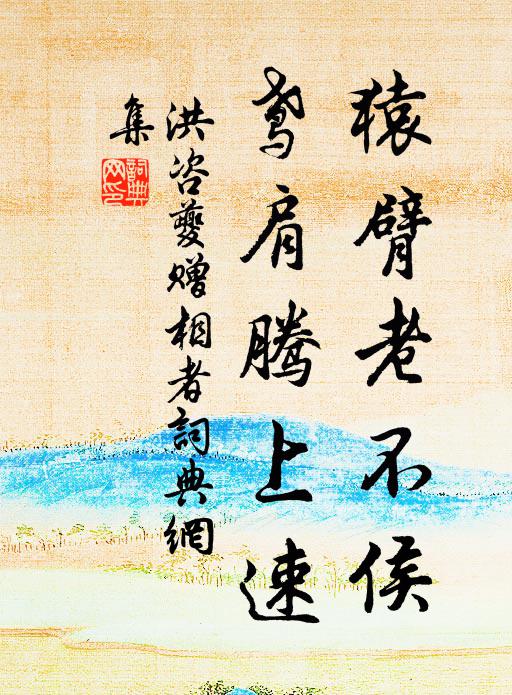 猿臂老不侯
鸢肩腾上速
洪咨夔赠相者詞典網
集
詞典
网印